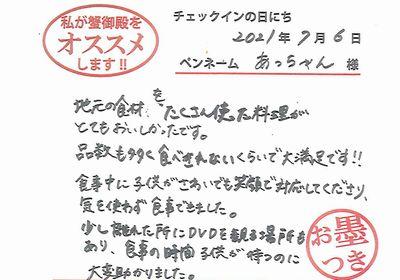 私が蟹御殿を
オススメ
します!!
チェックインの日にち
2021年7月6日
ペンネーム あっちゃん 様
地元の食材をたくさん使た料理が
とてもおいしかったです。
品数も多く食べきれないくらいで大満足です!!
食事中に子供がさわいでも笑顔で対応してくださり、
気を使わず食事できました。
少し離れた所にDVDを観る場所も
あり、食事の時間子供が待つのに
大変助かりました。
お墨
つき